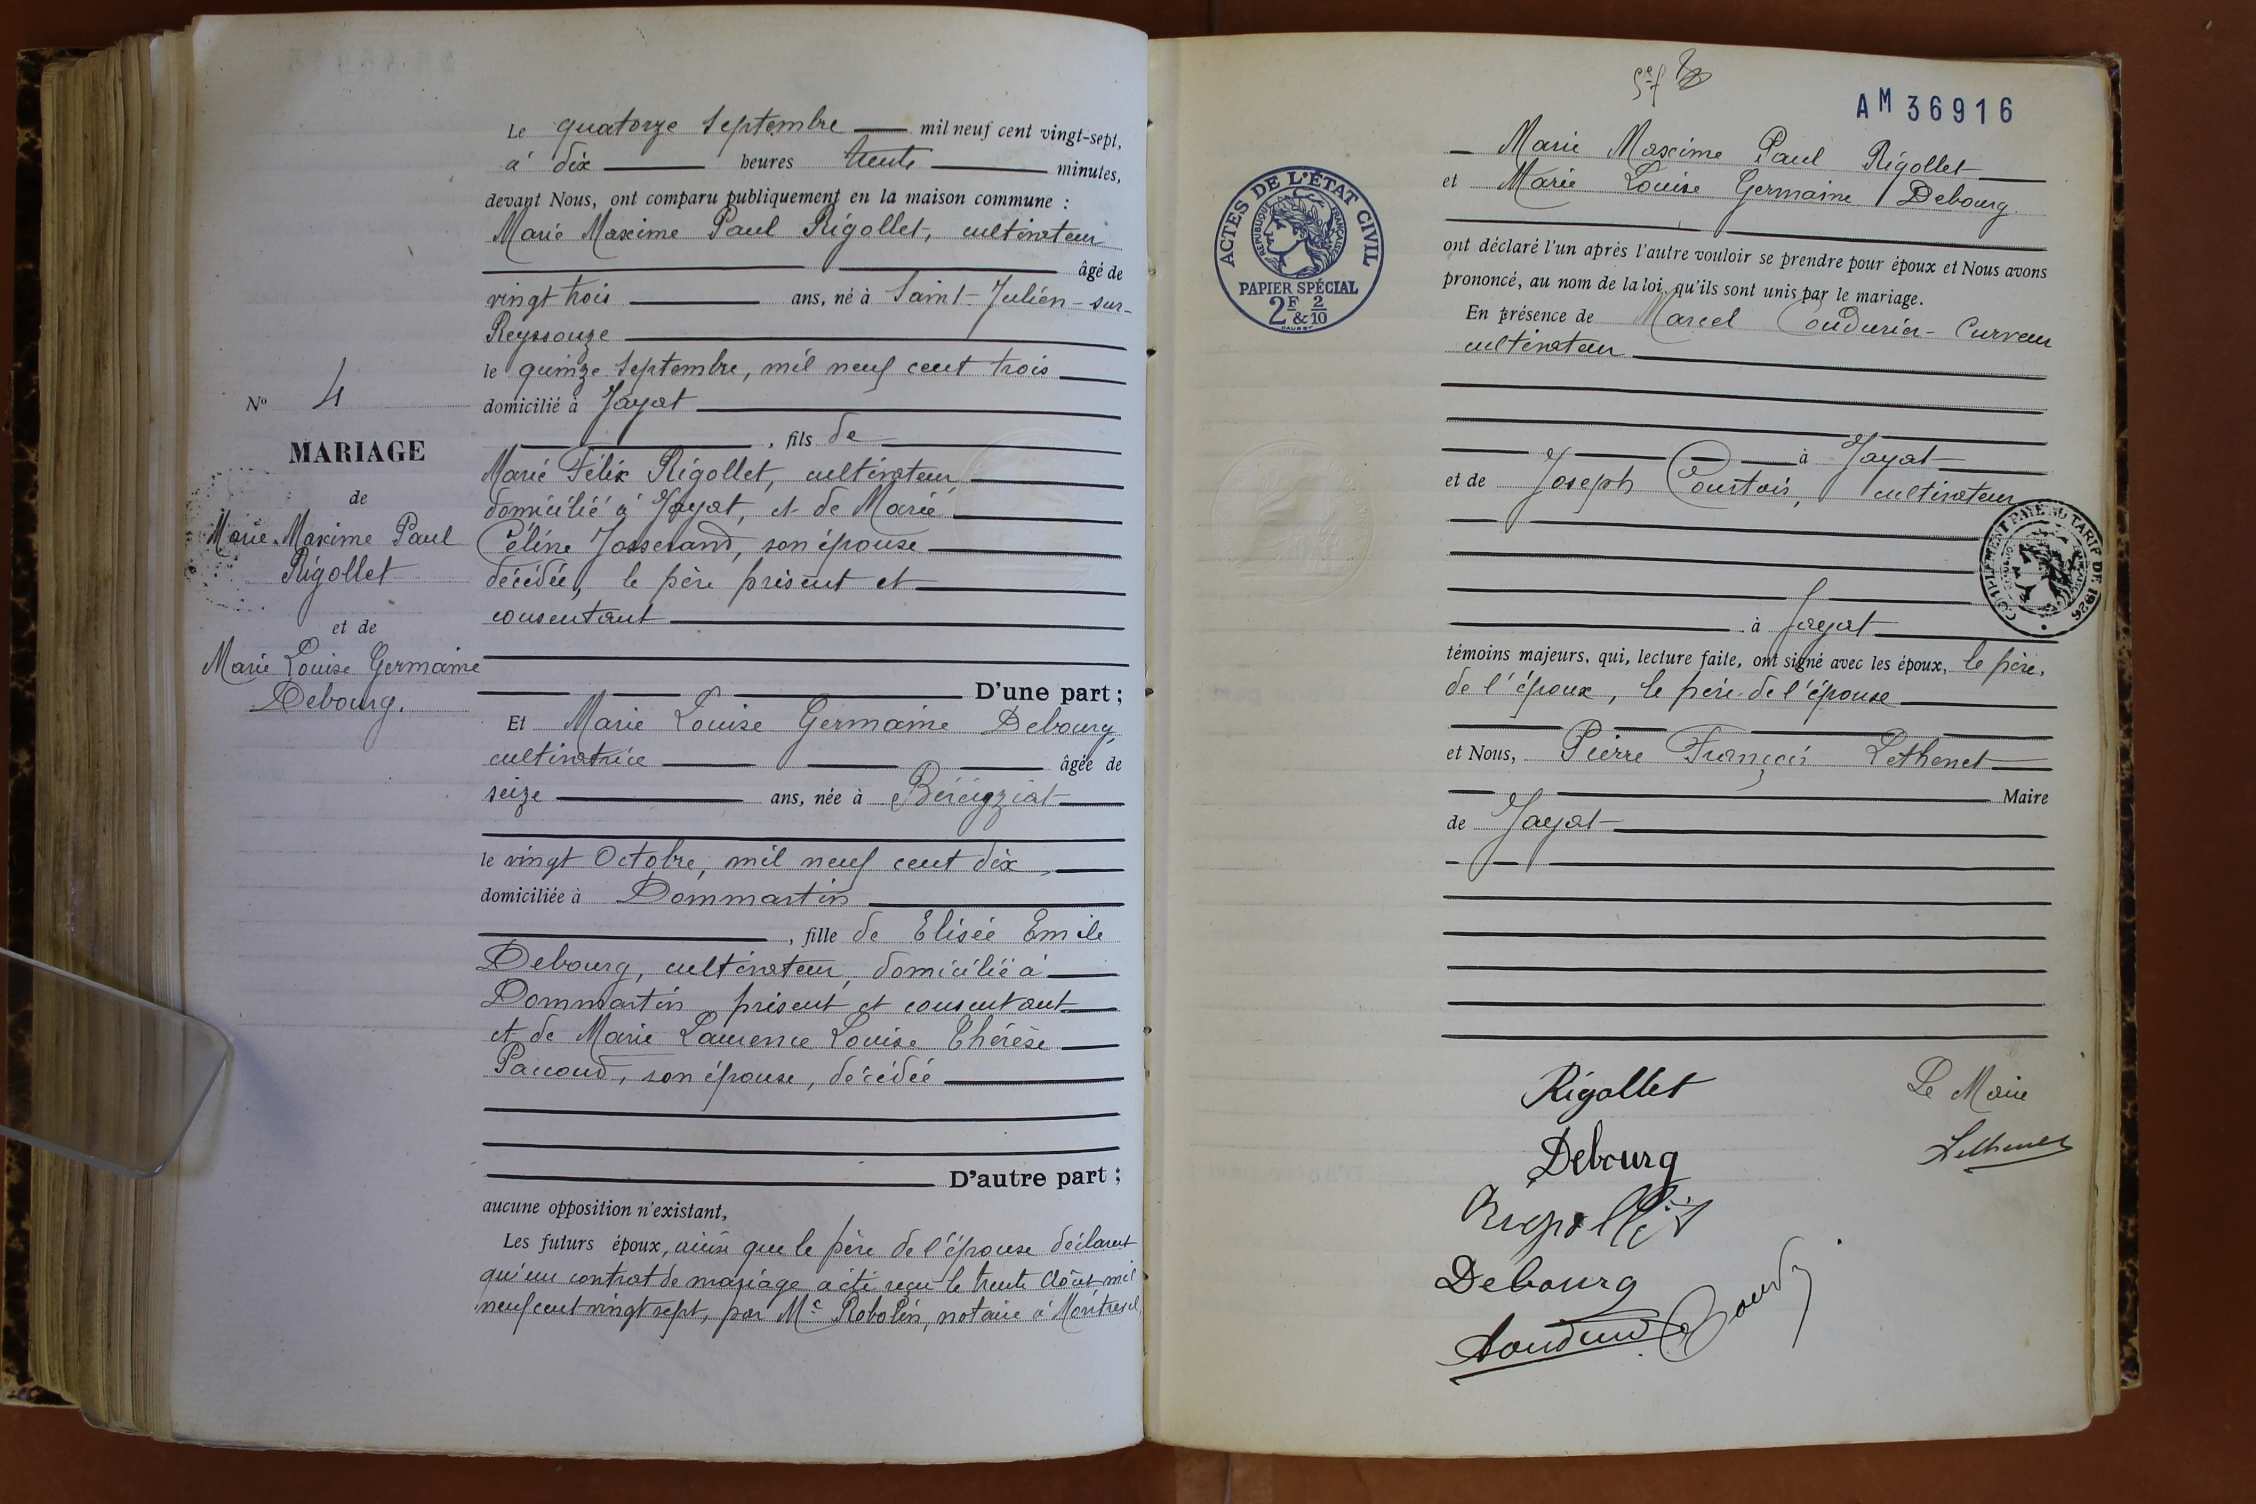 Le quatorze Septembre mil neuf cent vingt-sept,
à dix heures trente minutes,
devant Nous, ont comparu publiquement en la maison commune :
Marie Maxime Paul Rigollet, cultivateur
âgé de
vingt trois ans, né à Saint-Julien-sur-
Reyssouze
le quinze Septembre, mil neuf cent trois
domicilié à Jayat
, fils de
Marie Félix Rigollet, cultivateur
domicilié à Jayat, et de Marie
Céline Josserand, son épouse
décédée, le père présent et
consentant
D'une part ;
Et Marie Louise Germaine Debourg,
cultivatrice âgée de
seize ans, née à Béréyziat
le vingt Octobre, mil neuf cent dix,
domiciliée à Dommartin
, fille de Elisée Emile
Debourg, cultivateur, domicilié à
Dommartin présent et consentant
et de Marie Laurence Louise Thérèse
Paccoud, son épouse, décédée
D'autre part ;
aucune opposition n'existant,
Les futurs époux, ainsi que le père de l'épouse déclarent
qu'un contrat de mariage a été reçu le trente Août mil
neuf cent vingt sept, par Me Robolin, notaire à Montrevel
No 4
MARIAGE
de
Marie Maxime Paul
Rigollet
et de
Marie Louise Germaine
Debourg.
AM 36916
ACTES DE L'ÉTAT CIVIL
RÉPUBLIQUE FRANÇAISE
PAPIER SPÉCIAL
2F & 2/10
Marie Maxime Paul Rigollet
et Marie Louise Germaine Debourg.
ont déclaré l'un après l'autre vouloir se prendre pour époux et Nous avons
prononcé, au nom de la loi, qu'ils sont unis par le mariage.
En présence de Marcel Coudurier-Curveur
cultivateur
à Jayat
et de Joseph Courtois, cultivateur
COMPLÉMENT PAYÉ AU TARIF DE 1926
à Jayat
témoins majeurs, qui, lecture faite, ont signé avec les époux, le père,
de l'époux, le père de l'épouse
et Nous, Pierre François Lethenet
Maire
de Jayat
Rigollet
Le Maire
Debourg
Lethenet
Rigollet
Debourg